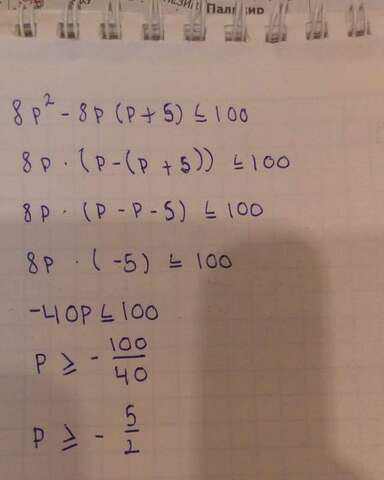 Палисир
8p² - 8p (p + 5) ≤ 100
8p · (p - (p + 5)) ≤ 100
8p · (p - p - 5) ≤ 100
8p · (-5) ≤ 100
-40p ≤ 100
p ≥ - 100/40
p ≥ - 5/2